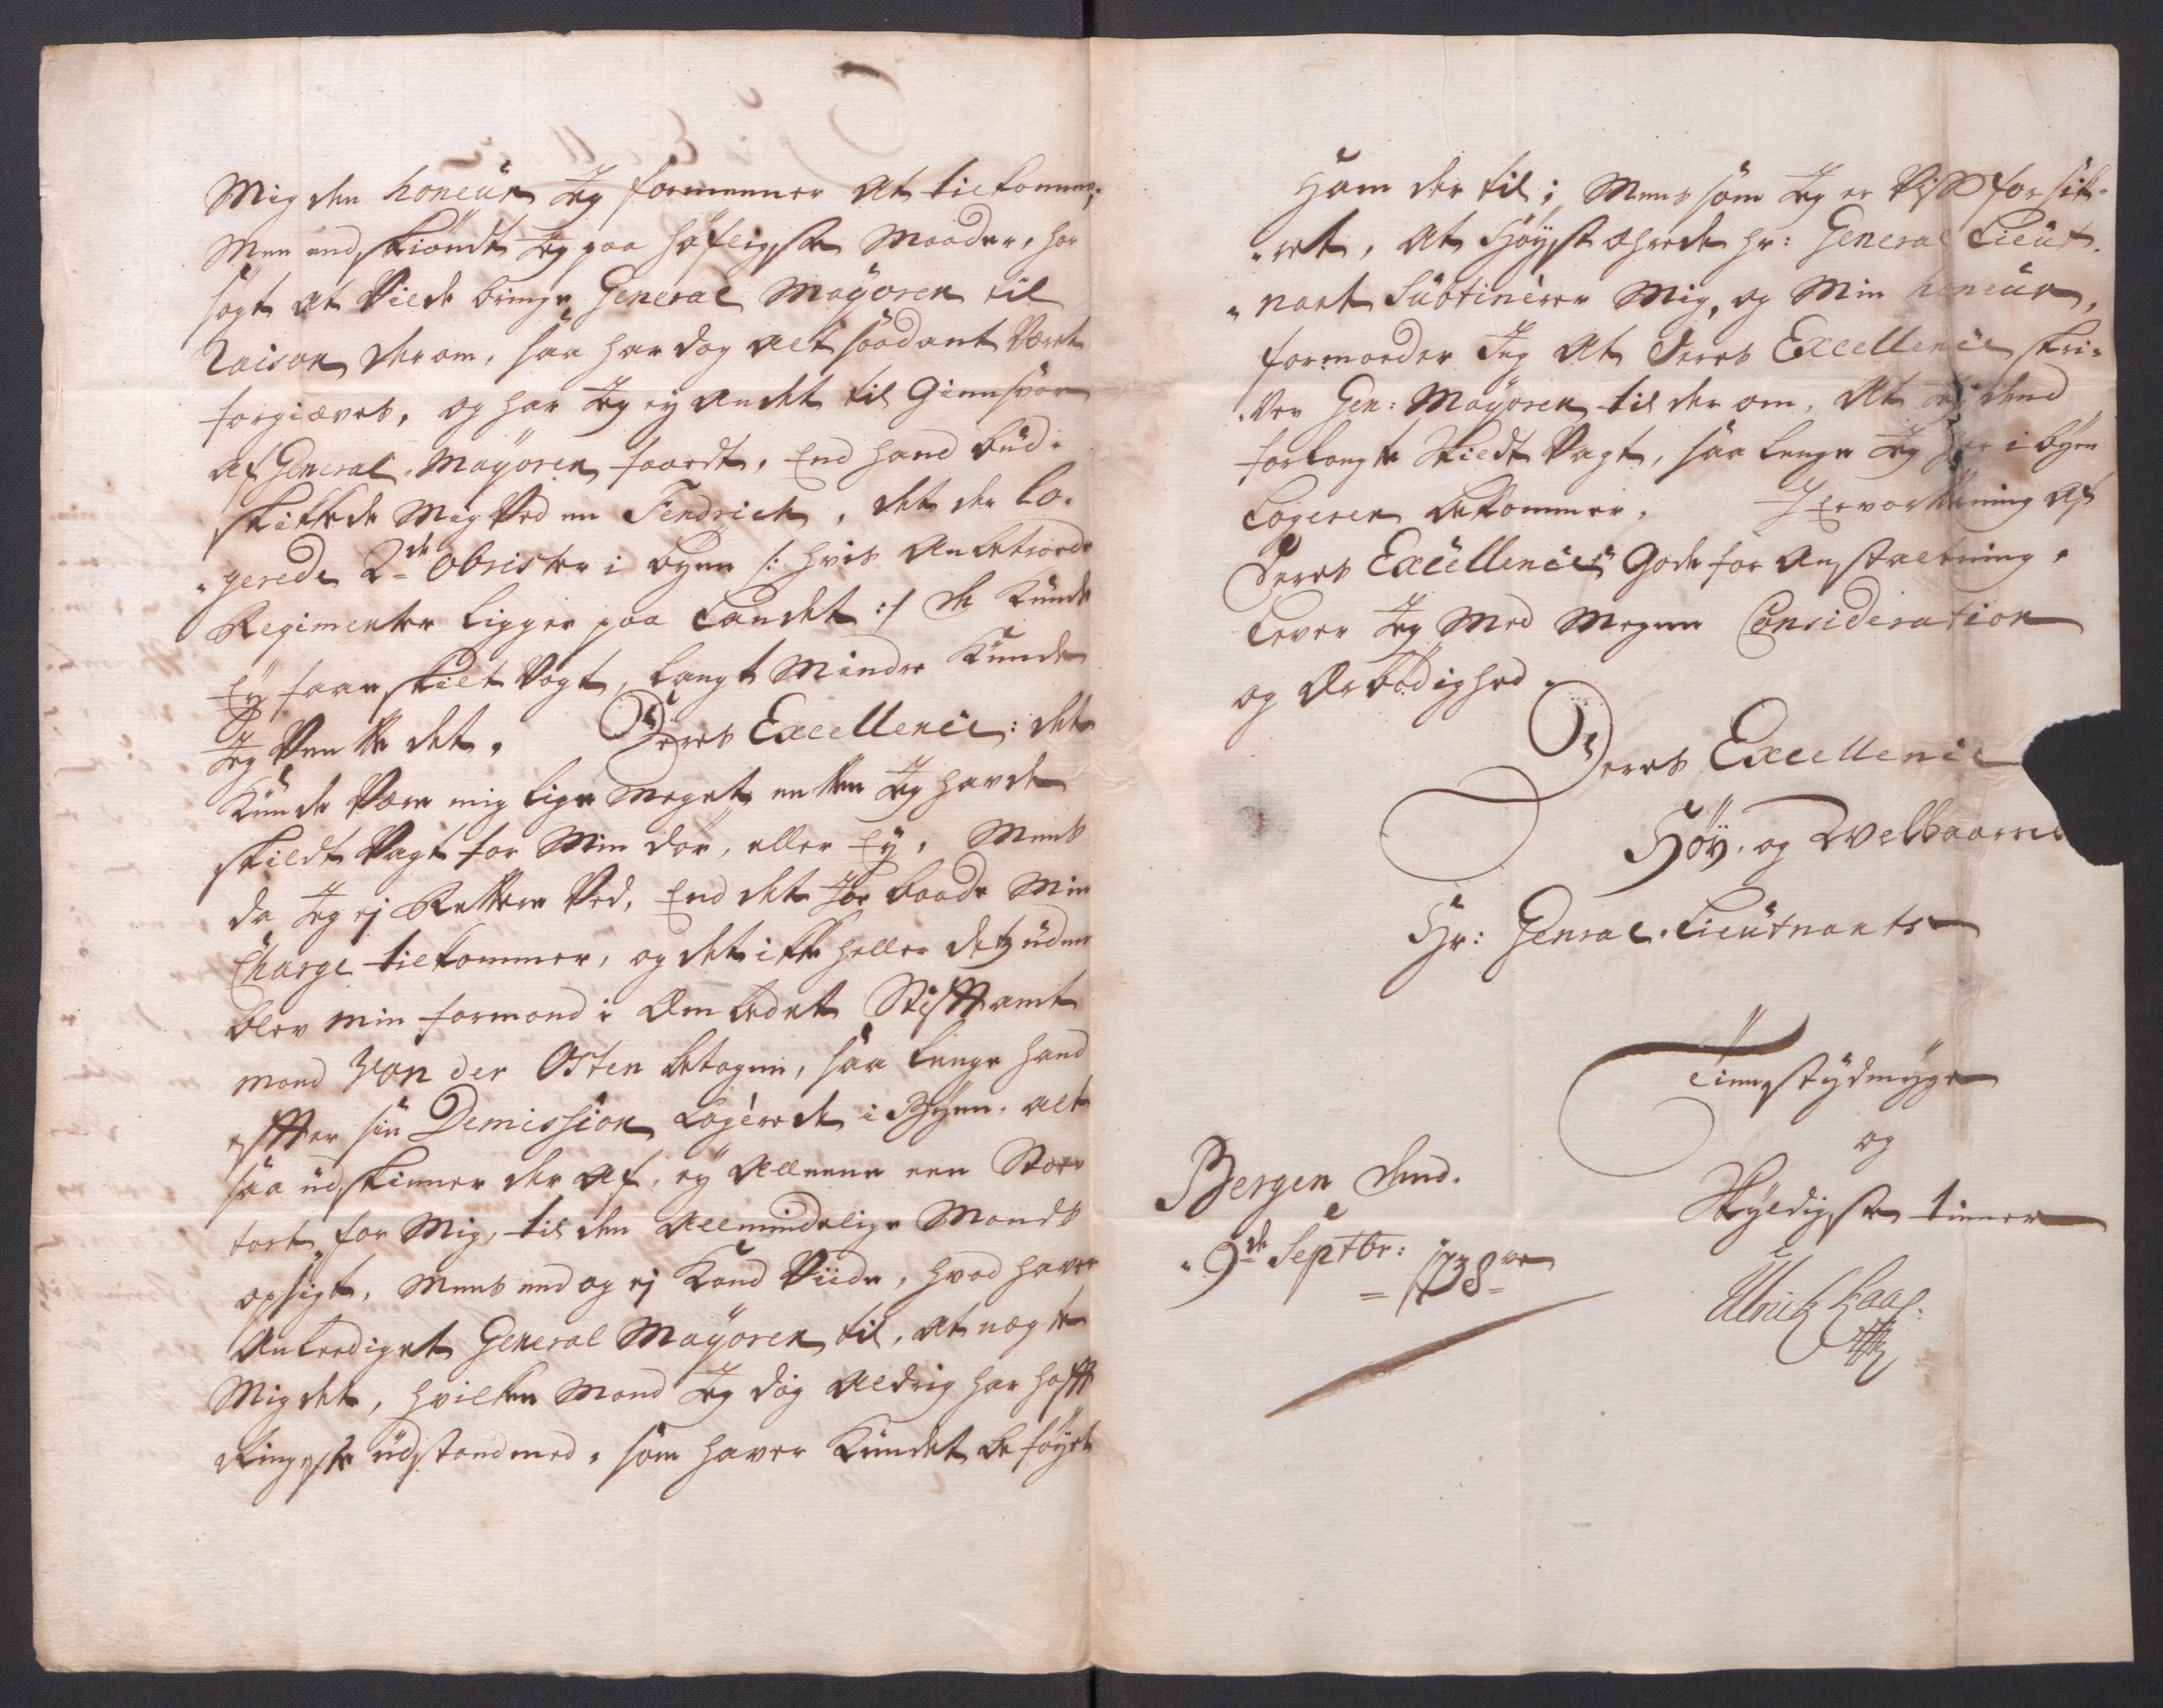 Mig den honeur Jeg formeener at tilkomme;
Men endskiöndt Jeg paa höfligste Maader, har
sögt at Vilde bringe General Mayoren til
Raison derom, saa har dog alt saadant Været
forgiæves, og har Jeg ey andet til Giensvar
af General-Mayoren faaedt, End hand bud-
skikkede Mig Ved en Fendrich, det de lo-
-gerede 2de Obrister i byen /: hvis anbetroede
Regimenter ligger paa Landet :/ de Kunde
Ey faae skilt Vagt, langt Mindre Kunde
Jeg Vente det. Deres Excellence: det
Kunde Være mig lige Meget enten Jeg havde
skildt Vagt for Min dör, eller Ey, Mens
da Jeg ej Rettere Ved, End det Joe baade Min
Charge tilkommer, og det ikke heller detz uden
blev min formand i Embedet Stifftamt
mand Von der Osten betagen, saa lenge hand
effter sin Demission Logerede i Byen, alt
saa udskinner der af, ey alleene een Stor
tort for Mig, til den allmindelige Mands
opsigt, Mens end og ej Kand Viide, hvad haver
Anleediget General Mayoren til, at nægte
Mig det, hvilken Mand Jeg dog aldrig har hafft
Ringeste udstand med, som haver Kundet beföyet
Ham der til; Mens som Jeg er Viss forsik-
-ret, at Höyst ærede Hr: General Lieut-
-nant Subtinerer Mig, og Min honeur,
formoeder Jeg at Deres Excellence skri-
-ver Gen: Mayoren til der om, at Jeg dend
forlangte Skildt Vagt, saa lenge Jeg her i byen
Logerer bekommer. I Ervartning af
Deres Excellences Gode for Anstaltning,
lever Jeg Med Megen Consideration
og Ærbödighed
Deres Excellence
Höy- og Welbaarne
Hr: Genral-Lieutnants
Tienstydmyge
og
Skyldigste tiener
Ulrich Kaas:
Bergen dend.
9de Septbr: 1738